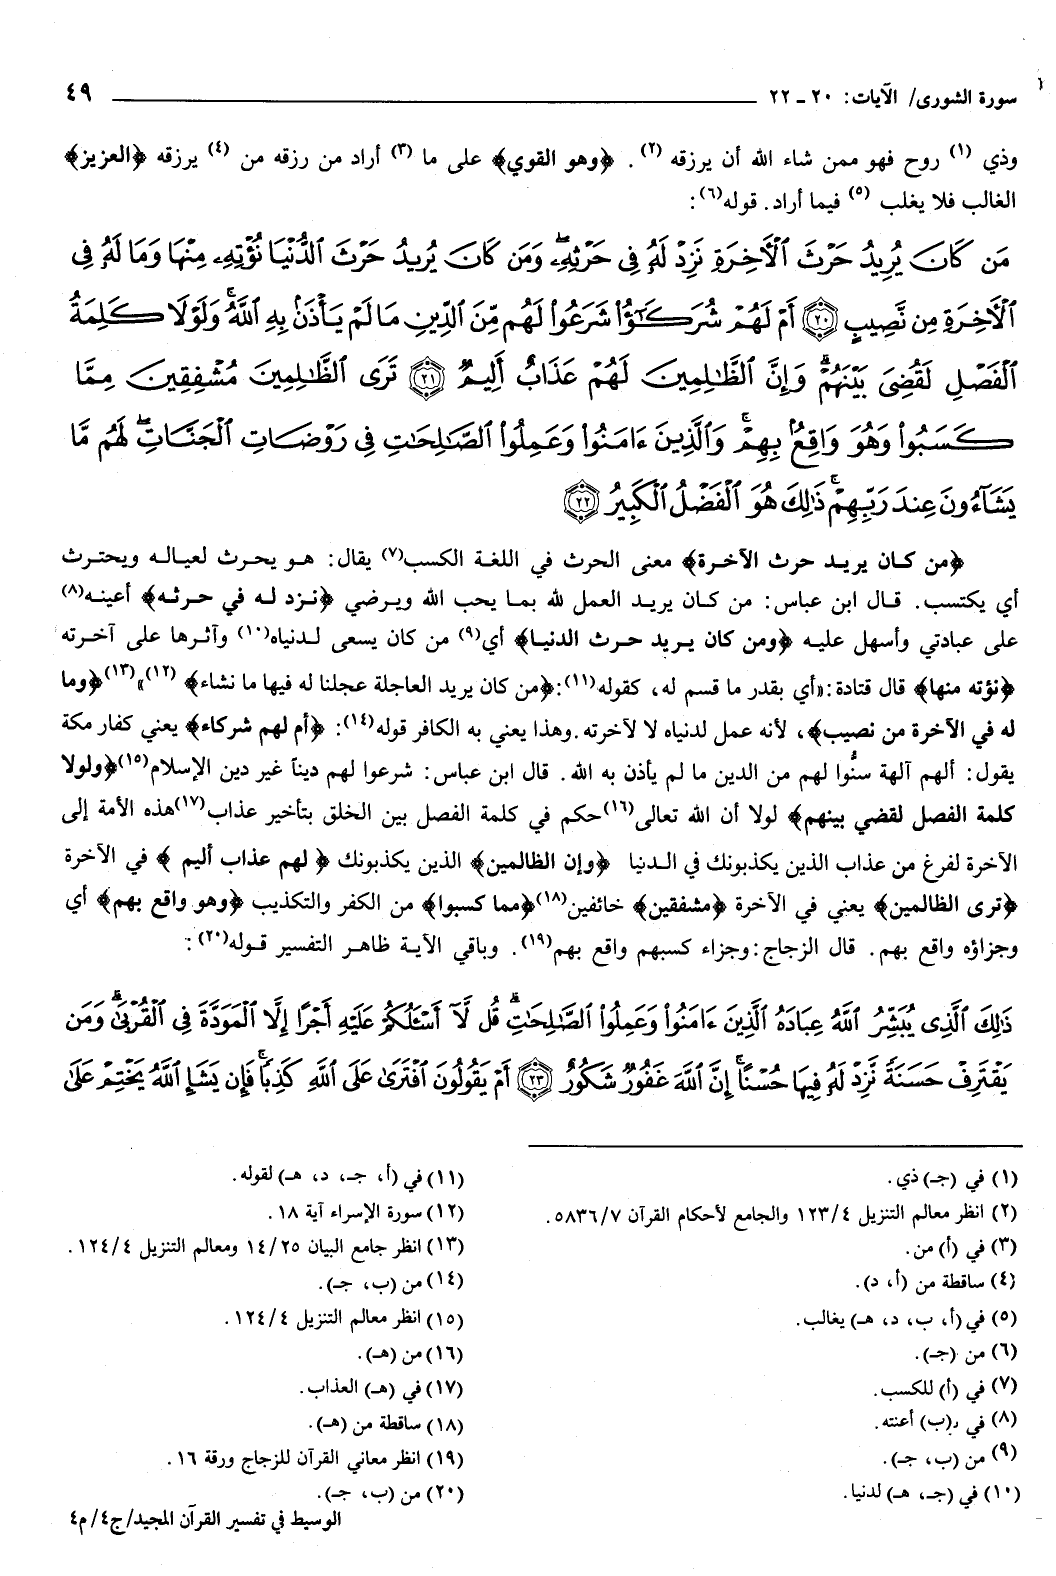 سورة الشورى/ الآيات: ٢٠ ـ ٢٢ ٤٩
وذي (١) روح فهو ممن شاء الله أن يرزقه (٢). ﴿وهو القوي﴾ على ما (٣) أراد من رزقه من (٤) يرزقه ﴿العزيز﴾
الغالب فلا يغلب (٥) فيما أراد. قوله(٦):
مَن كَانَ يُرِيدُ حَرْثَ ٱلْأَخِرَةِ نَزِدْ لَهُۥ فِى حَرْثِهِۦۖ وَمَن كَانَ يُرِيدُ حَرْثَ ٱلدُّنْيَا نُؤْتِهِۦ مِنْهَا وَمَا لَهُۥ فِى
ٱلْأَخِرَةِ مِن نَّصِيبٍ ٢٠ أَمْ لَهُمْ شُرَكَٰٓؤُا۟ شَرَعُوا۟ لَهُم مِّنَ ٱلدِّينِ مَا لَمْ يَأْذَنۢ بِهِ ٱللَّهُۚ وَلَوْلَا كَلِمَةُ
ٱلْفَصْلِ لَقُضِىَ بَيْنَهُمْۗ وَإِنَّ ٱلظَّٰلِمِينَ لَهُمْ عَذَابٌ أَلِيمٌ ٢١ تَرَى ٱلظَّٰلِمِينَ مُشْفِقِينَ مِمَّا
كَسَبُوا۟ وَهُوَ وَاقِعٌۢ بِهِمْۗ وَٱلَّذِينَ ءَامَنُوا۟ وَعَمِلُوا۟ ٱلصَّٰلِحَٰتِ فِى رَوْضَاتِ ٱلْجَنَّاتِۖ لَهُم مَّا
يَشَآءُونَ عِندَ رَبِّهِمْۚ ذَٰلِكَ هُوَ ٱلْفَضْلُ ٱلْكَبِيرُ ٢٢
﴿من كان يريد حرث الآخرة﴾ معنى الحرث في اللغة الكسب(٧) يقال: هو يحرث لعياله ويحترث
أي يكتسب. قال ابن عباس: من كان يريد العمل لله بما يحب الله ويرضي ﴿نزد له في حرثه﴾ أعينه(٨)
على عبادتي وأسهل عليه ﴿ومن كان يريد حرث الدنيا﴾ أي(٩) من كان يسعى لدنياه(١٠) وآثرها على آخرته
﴿نؤته منها﴾ قال قتادة: «أي بقدر ما قسم له، كقوله(١١): ﴿من كان يريد العاجلة عجلنا له فيها ما نشاء﴾ (١٢)»(١٣) ﴿وما
له في الآخرة من نصيب﴾، لأنه عمل لدنياه لا لآخرته. وهذا يعني به الكافر قوله(١٤): ﴿أم لهم شركاء﴾ يعني كفار مكة
يقول: ألهم آلهة سنُّوا لهم من الدين ما لم يأذن به الله. قال ابن عباس: شرعوا لهم ديناً غير دين الإسلام(١٥) ﴿ولولا
كلمة الفصل لقضي بينهم﴾ لولا أن الله تعالى(١٦) حكم في كلمة الفصل بين الخلق بتأخير عذاب(١٧) هذه الأمة إلى
الآخرة لفرغ من عذاب الذين يكذبونك في الدنيا ﴿وإن الظالمين﴾ الذين يكذبونك ﴿ لهم عذاب أليم ﴾ في الآخرة
﴿ترى الظالمين﴾ يعني في الآخرة ﴿مشفقين﴾ خائفين(١٨) ﴿مما كسبوا﴾ من الكفر والتكذيب ﴿وهو واقع بهم﴾ أي
وجزاؤه واقع بهم. قال الزجاج: وجزاء كسبهم واقع بهم(١٩). وباقي الآية ظاهر التفسير قوله(٢٠):
ذَٰلِكَ ٱلَّذِى يُبَشِّرُ ٱللَّهُ عِبَادَهُ ٱلَّذِينَ ءَامَنُوا۟ وَعَمِلُوا۟ ٱلصَّٰلِحَٰتِۗ قُل لَّآ أَسْـَٔلُكُمْ عَلَيْهِ أَجْرًا إِلَّا ٱلْمَوَدَّةَ فِى ٱلْقُرْبَىٰۗ وَمَن
يَقْتَرِفْ حَسَنَةً نَّزِدْ لَهُۥ فِيهَا حُسْنًاۚ إِنَّ ٱللَّهَ غَفُورٌ شَكُورٌ ٢٣ أَمْ يَقُولُونَ ٱفْتَرَىٰ عَلَى ٱللَّهِ كَذِبًاۖ فَإِن يَشَإِ ٱللَّهُ يَخْتِمْ عَلَىٰ
(١) في (جـ) ذي.
(٢) انظر معالم التنزيل ١٢٣/٤ والجامع لأحكام القرآن ٥٨٣٦/٧.
(٣) في (أ) من.
(٤) ساقطة من (أ، د).
(٥) في (أ، ب، د، هـ) يغالب.
(٦) من (جـ).
(٧) في (أ) للكسب.
(٨) في (ب) أعنته.
(٩) من (ب، جـ).
(١٠) في (جـ، هـ) لدنيا.
(١١) في (أ، جـ، د، هـ) لقوله.
(١٢) سورة الإسراء آية ١٨.
(١٣) انظر جامع البيان ١٤/٢٥ ومعالم التنزيل ١٢٤/٤.
(١٤) من (ب، جـ).
(١٥) انظر معالم التنزيل ١٢٤/٤.
(١٦) من (هـ).
(١٧) في (هـ) العذاب.
(١٨) ساقطة من (هـ).
(١٩) انظر معاني القرآن للزجاج ورقة ١٦.
(٢٠) من (ب، جـ).
الوسيط في تفسير القرآن المجيد/ج٤/م٤